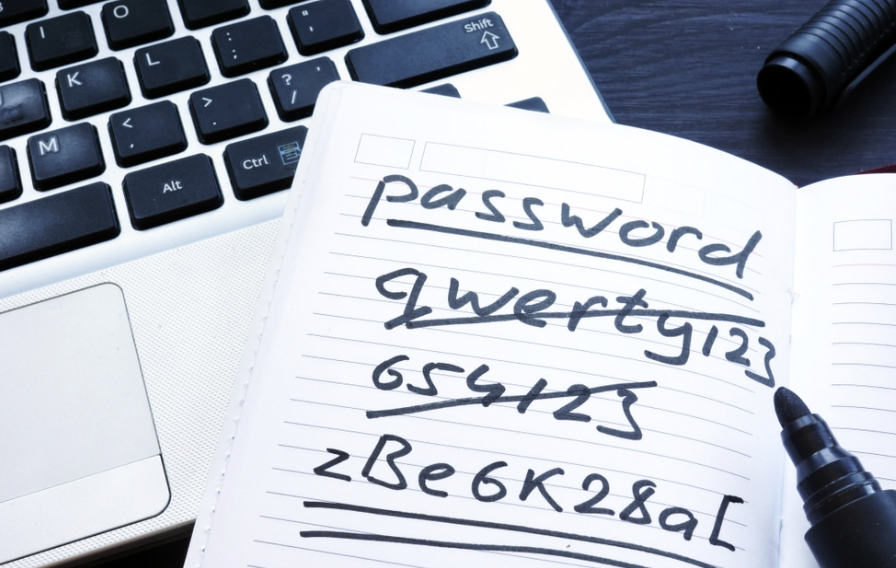 I O : ; " ' Shift
K L ? /
M < , > .
Alt Ctrl
password
qwerty123
654123
zBe6K28a[